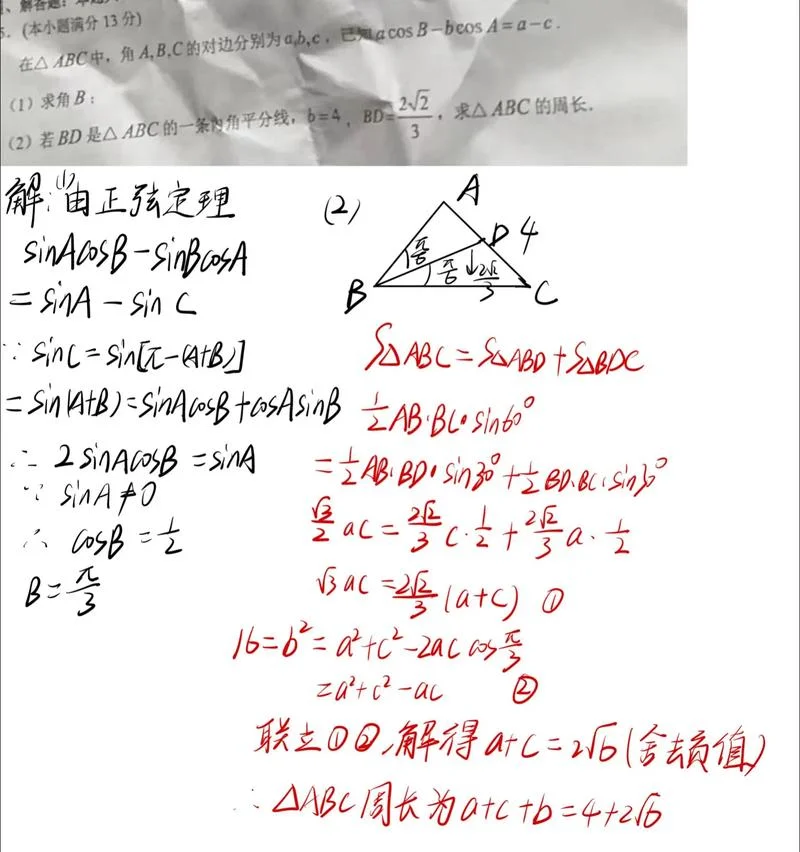 、解答题：本
5．(本小题满分 13 分)
在△ ABC中，角 A,B,C 的对边分别为 a,b,c，已知 a cos B−b cos A=a−c．
（1）求角 B；
（2）若 BD 是△ ABC 的一条内角平分线，b=4，BD=2√2/3，求△ ABC 的周长．
解：(1)由正弦定理
sinAcosB−sinBcosA
=sinA−sin C
∵ sinC=sin[π−(A+B)]
=sin(A+B)=sinAcosB+cosAsinB
∴ 2sinAcosB=sinA
∵ sinA≠0
∴ cosB=1/2
B=π/3
(2)
A
D 4
π/6 π/6 ↓2√2/3
B C
S△ABC=S△ABD+S△BDC
1/2AB·BC·sin60°
=1/2AB·BD·sin30°+1/2BD·BC·sin30°
√3/2 ac=2√2/3 c·1/2+2√2/3 a·1/2
√3ac=2√2/3(a+c) ①
16=b²=a²+c²−2ac cosπ/3
=a²+c²−ac ②
联立①②,解得a+c=2√6(舍去负值)
∴ △ABC周长为a+c+b=4+2√6